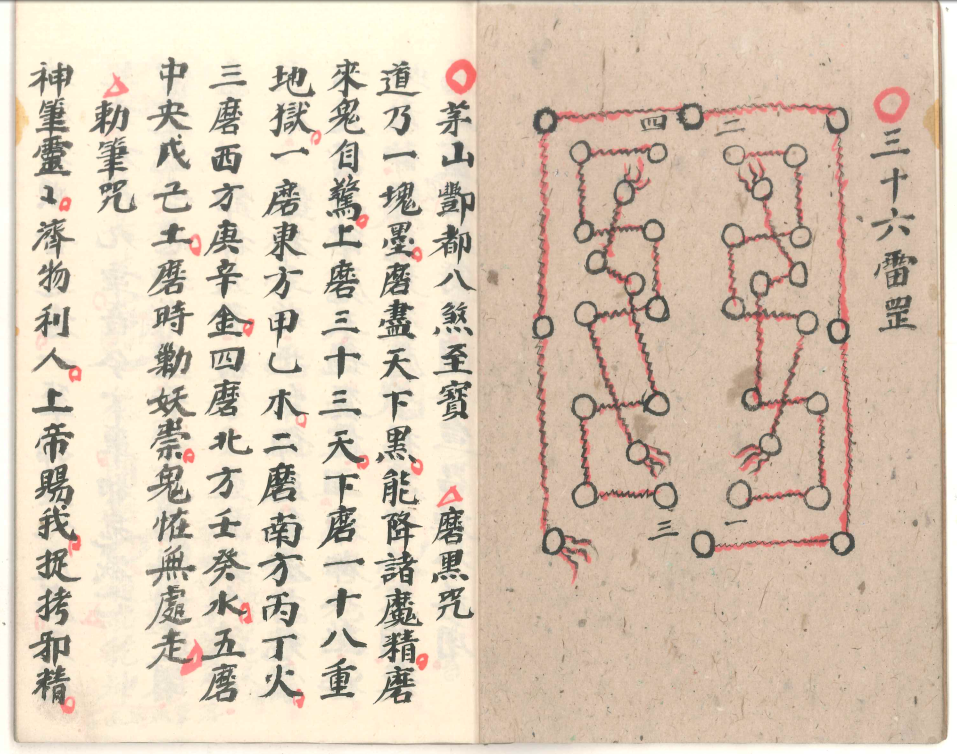 三十六雷罡
二
四
一
三
茅山酆都八煞至寶 磨黒咒
道乃一塊墨磨盡天下黒能降諸魔精磨
來鬼自驚上磨三十三天下磨一十八重
地獄一磨東方甲乙木二磨南方丙丁火
三磨西方庚辛金四磨北方壬癸水五磨
中央戊己土磨時妖祟鬼恠無處走
勅筆咒
神筆靈〻濟物利人上帝賜我捉拷邪精